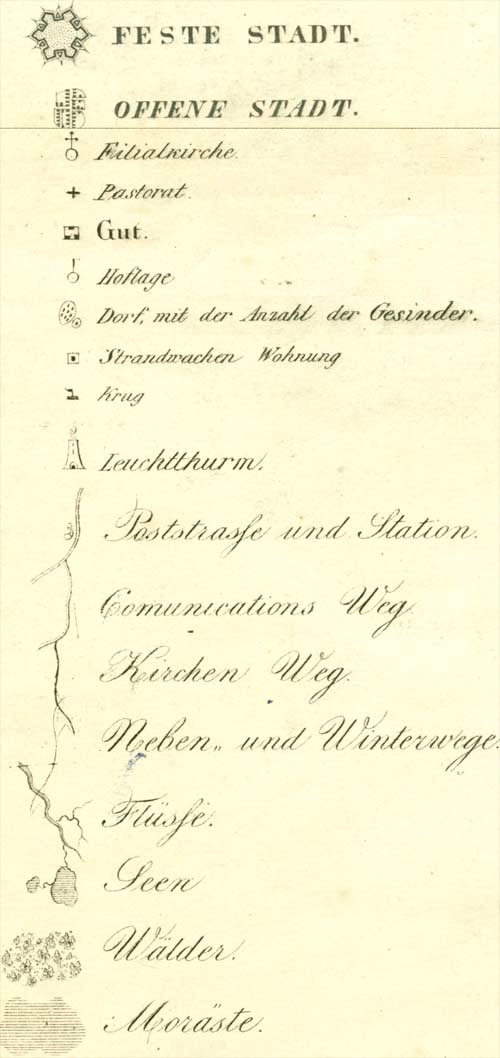 FESTE STADT.
OFFENE STADT.
Filialkirche.
Pastorat.
Gut.
Hoflage
Dorf, mit der Anzahl der Gesinder.
Strandwachen Wohnung
Krug
Leuchtthurm.
Poststrasse und Station.
Comunications Weg
Kirchen Weg.
Neben„ und Winterwege.
Flüsse.
Seen
Wälder.
Moräste.